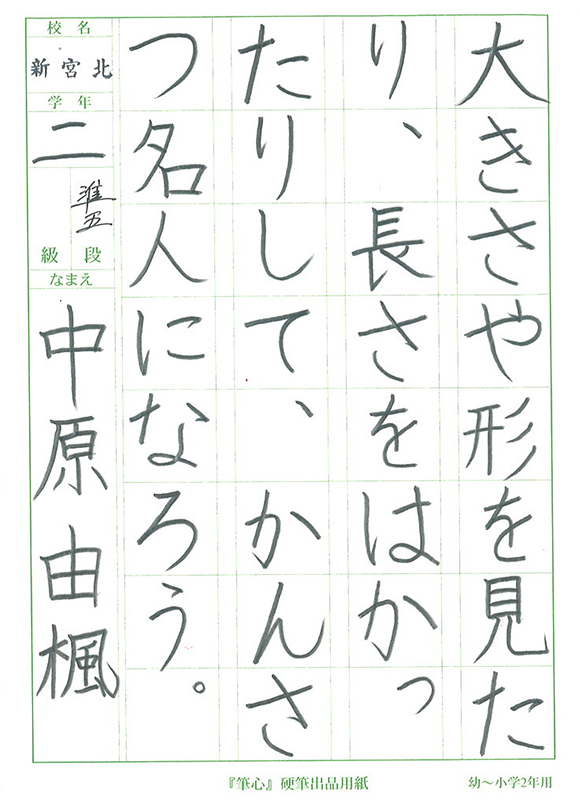 大きさや形を見た
り、長さをはかっ
たりして、かんさ
つ名人になろう。
校名
新宮北
学年
二
級段
準五
なまえ
中原由楓
『筆心』硬筆出品用紙
幼～小学2年用